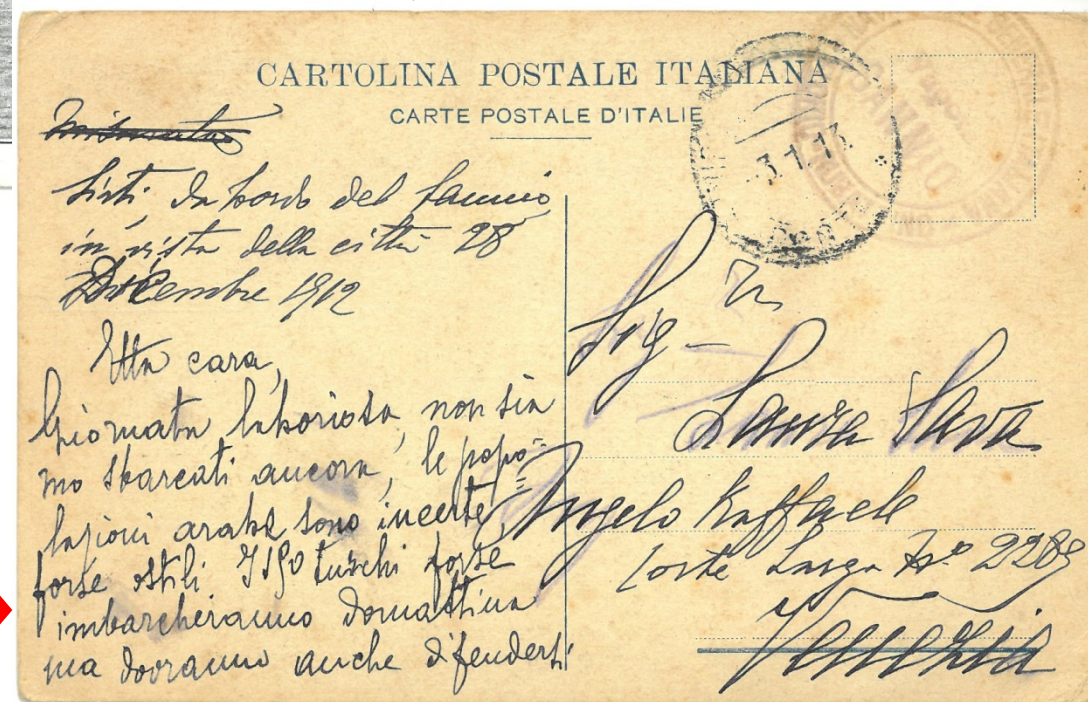 CARTOLINA POSTALE ITALIANA
CARTE POSTALE D'ITALIE
Misurata
Sirti da bordo del Sannio
in vista della città 28
Dicembre 1912
Etta cara,
Giornata laboriosa, non sia
mo sbarcati ancora, le popo=
lazioni arabe sono incerte,
forse ostili I 150 turchi forse
imbarcheranno domattina
ma dovranno anche difendersi
3.1.13
SANNIO
Sig
Sava
Angelo Raffaele
Corte Larga No 2289
Venezia